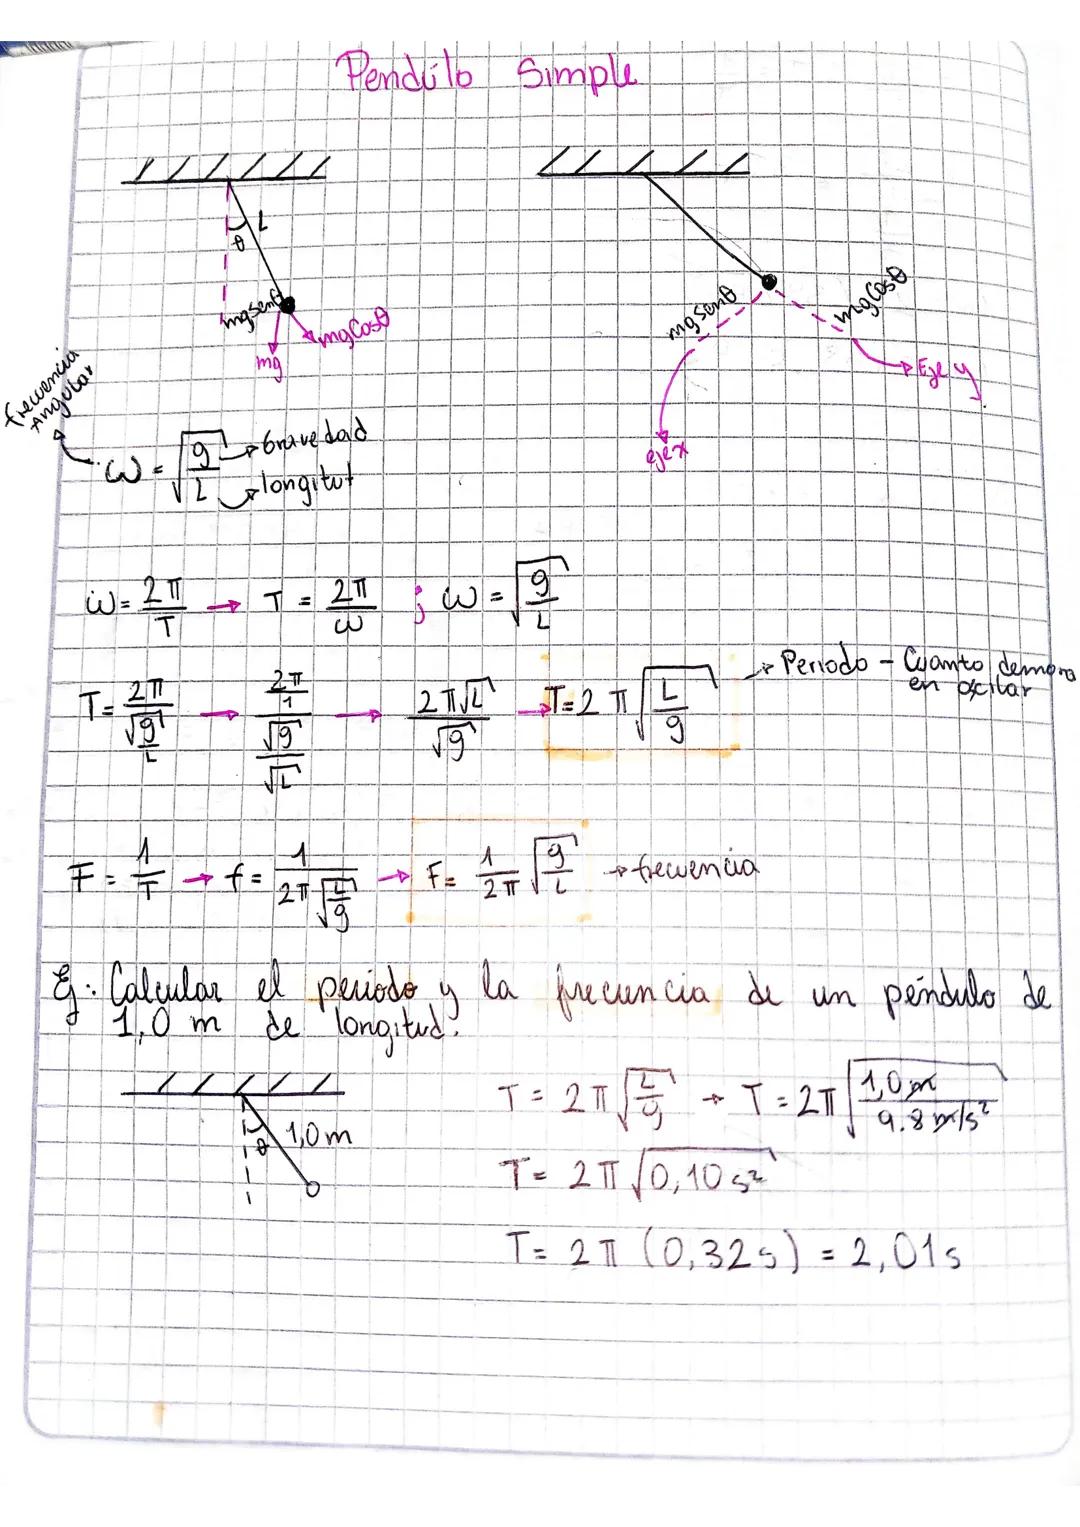 Pendúlo Simple
θ L
mgsenθ
mgCosθ
mg
mgsenθ
mgCosθ
Eje y
eje x
frecuencia Angular
ω = √(g/L)
Gravedad
longitut
ω = 2π/T → T = 2π/ω ; ω = √(g/L)
T = 2π/√(g/L) → (2π/1)/(√g/√L) → 2π√L/√g → T = 2π√(L/g) → Periodo - Cuanto demora en oscilar
F = 1/T → f = 1/(2π√(L/g)) → F = 1/2π √(g/L) → frecuencia
Ej: Calcular el periodo y la frecuencia de un péndulo de
1,0 m de longitud.
θ 1,0 m
T = 2π√(L/g) → T = 2π√(1,0 m/9.8 m/s²)
T = 2π√(0,10 s²)
T = 2π (0,32 s) = 2,01 s